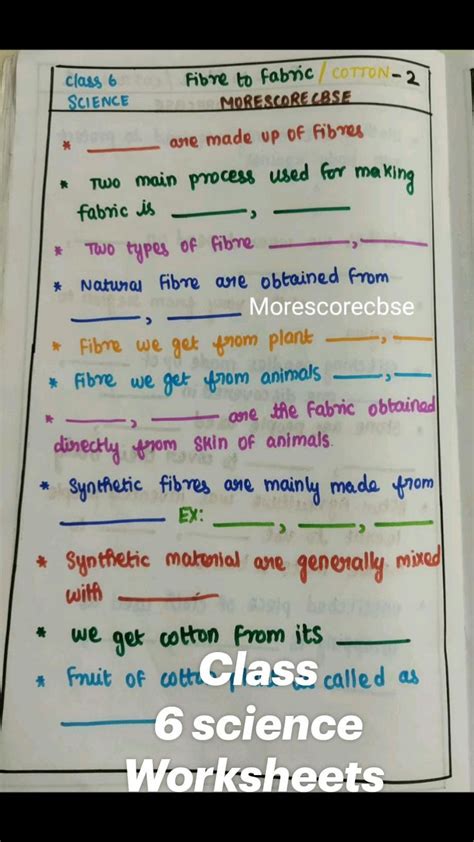 Class 6 Fibre to Fabric / COTTON - 2
SCIENCE MORESCORECBSE
* ______ are made up of Fibres
* Two main process used for making
fabric is ______, ______
* Two types of fibre ______, ______
* Natural Fibre are obtained from
______, ______ Morescorecbse
* Fibre we get from plant ____, ____
* Fibre we get from animals ____, ____
* ____, ____ are the Fabric obtained
directly from skin of animals.
* Synthetic fibres are mainly made from
______ EX: ____, ____, ____
* Synthetic material are generally mixed
with ______
* we get cotton from its ______
Class
* Fruit of called as
______ 6 science
Worksheets